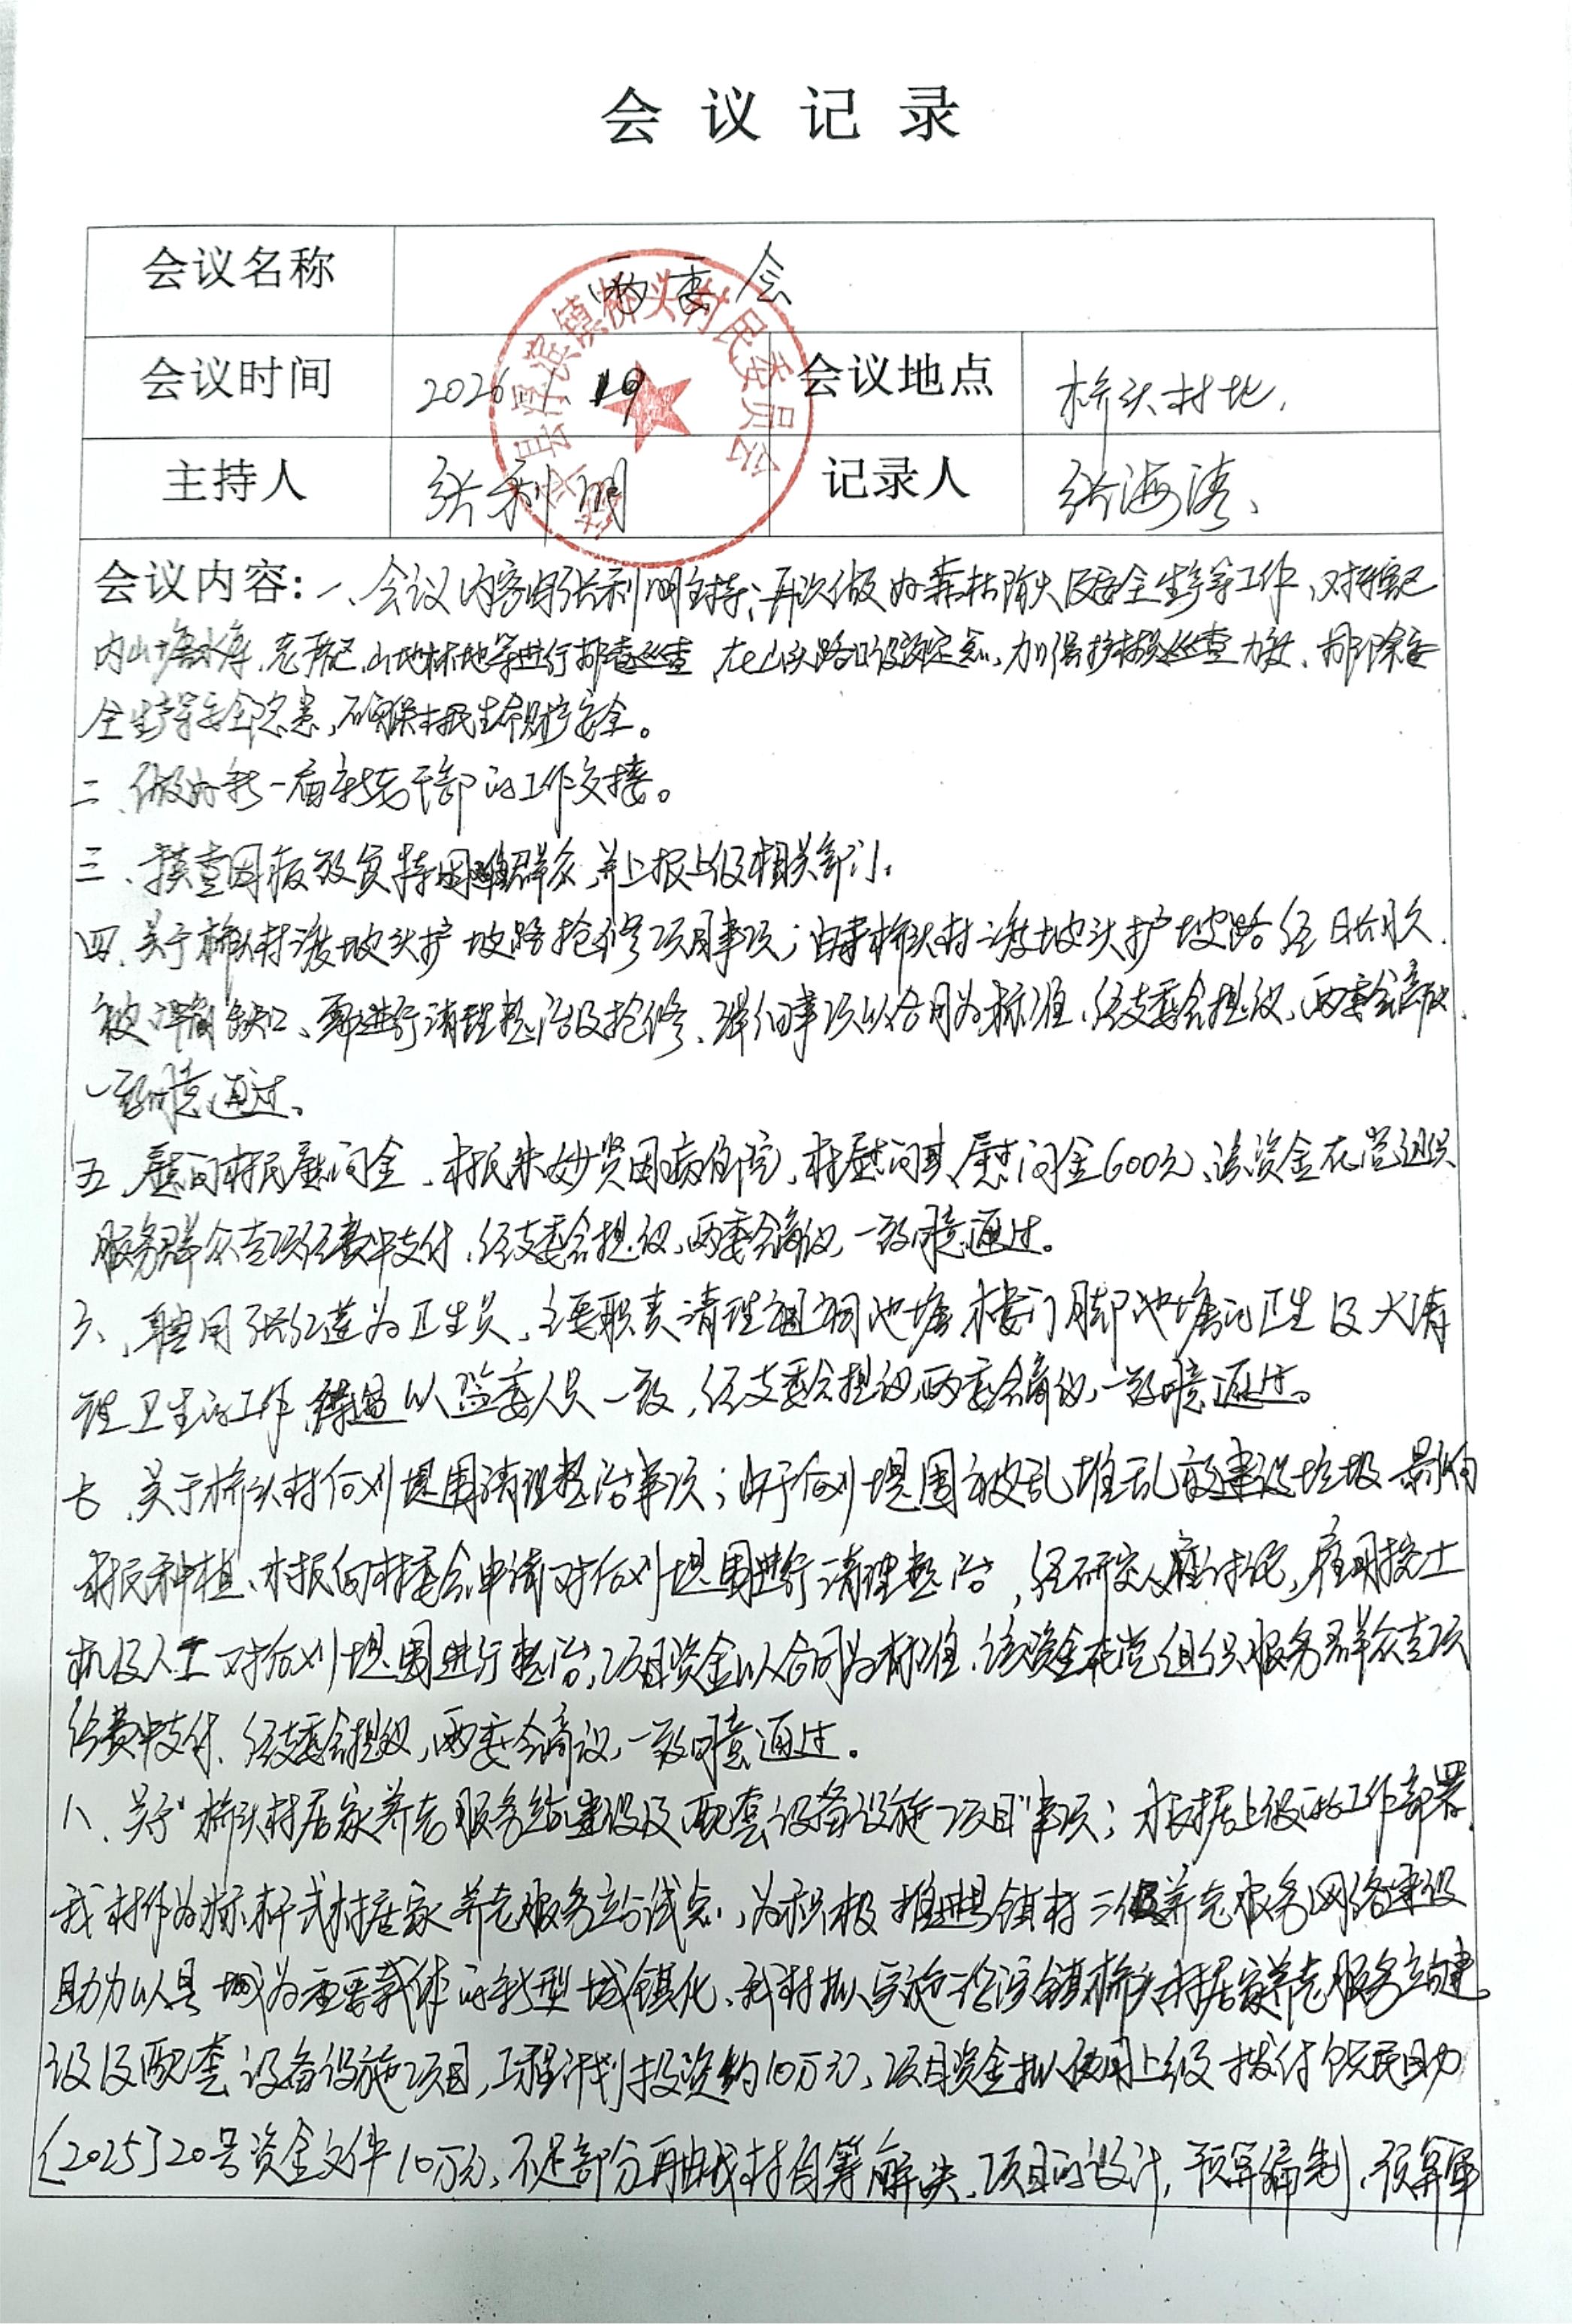 会议记录
会议名称 两委会
会议时间 2026 1 19 会议地点 桥头村址
主持人 张利明 记录人 张海涛
镇桥头村民委员会
会议内容：一、会议内容由张利明主持；再次做好森林防火及安全生产等工作，对辖区
内山塘水库、危房、山地林地等进行排查巡查，在山头路口设固定点，加强护林员巡查力度、排除安
全生产等安全隐患，确保村民生命财产安全。
二、做好新一届新老干部的工作交接。
三、摸查因病致贫特困难群众，并上报上级相关部门。
四、关于桥头村渡坡头护坡路抢修项目事项；由于桥头村渡坡头护坡路经日长月久
被冲崩缺口、需进行清理整治及抢修、详细事项以合同为标准，经支委会提议，两委会商议，
一致同意通过。
五、慰问村民慰问金，村民朱妙贤因病住院，村慰问其慰问金600元，该资金在党组织
服务群众专项经费中支付，经支委会提议，两委会商议，一致同意通过。
六、聘用张红莲为卫生员，主要职责清理祖祠池塘、楼门脚池塘的卫生及大清
理卫生的工作，待遇以监委人员一致，经支委会提议，两委会商议，一致同意通过。
七、关于桥头村何刘堤围清理整治事项；由于何刘堤围被乱堆乱放建设垃圾影响
村民种植、村民向村委会申请对何刘堤围进行清理整治，经研究及座讨论，雇用挖土
机及人工对何刘堤围进行整治，项目资金以合同为标准，该资金在党组织服务群众专项
经费中支付、经支委会提议，两委会商议，一致同意通过。
八、关于“桥头村居家养老服务站建设及配套设备设施项目”事项；根据上级的工作部署，
我村作为标杆式村居家养老服务站试点，为积极推进县镇村三级养老服务网络建设
助力以县城为重要载体的新型城镇化、我村拟实施 镇桥头村居家养老服务站建
设及配套设备设施项目，工程计划投资约10万元，项目资金拟使用上级拨付 民助
〔2025〕20号资金文件10万元，不足部分再由我村自筹解决，项目的设计，预算编制、预算审